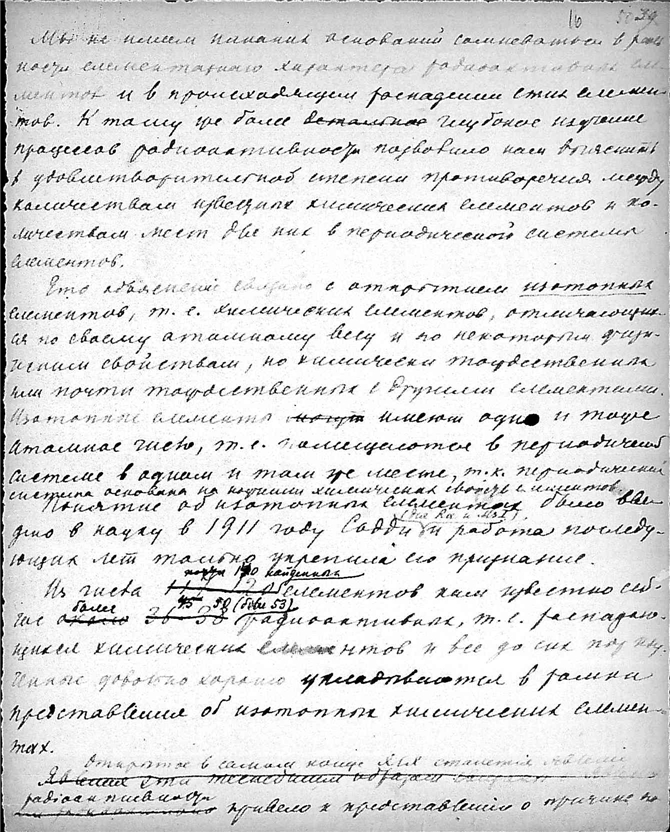 16 39
Мы не имеем никаких оснований сомневаться в
ности элементарного характера радиоактивных эле-
ментов и в происходящем распадении этих элемен-
тов. К тому же более детальное глубокое изучение
процессов радиоактивности позволило нам выяснить
в удовлетворительной степени противоречия между
количеством известных химических элементов и ко-
личеством мест для них в периодической системе
элементов.
Это объяснение связано с открытием изотопных
элементов, т. е. химических элементов, отличающих-
ся по своему атомному весу и по некоторым физи-
ческим свойствам, но химически тождественных
или почти тождественных с другими элементами.
Изотопные элементы могут имеют одно и тоже
атомное число, т. е. помещаются в периодической
системе в одном и том же месте, т.к. периодическая
система основана на изучении химических свойств элементов
Понятие об изотопных элементах было вве-
дено в науку в 1911 году Содди и работа последу-
ющих лет только укрепила его признание.
Из числа элементов нам известно сей-
час более 45 50 (более 53) радиоактивных, т. е. распадаю-
щихся химических элементов и все до сих пор изу-
ченные довольно хорошо укладываются в рамки
представления об изотопных химических элемен-
тах.
Открытое в самом конце XIX столетия явление
радиоактивности
привело к представлению о причине